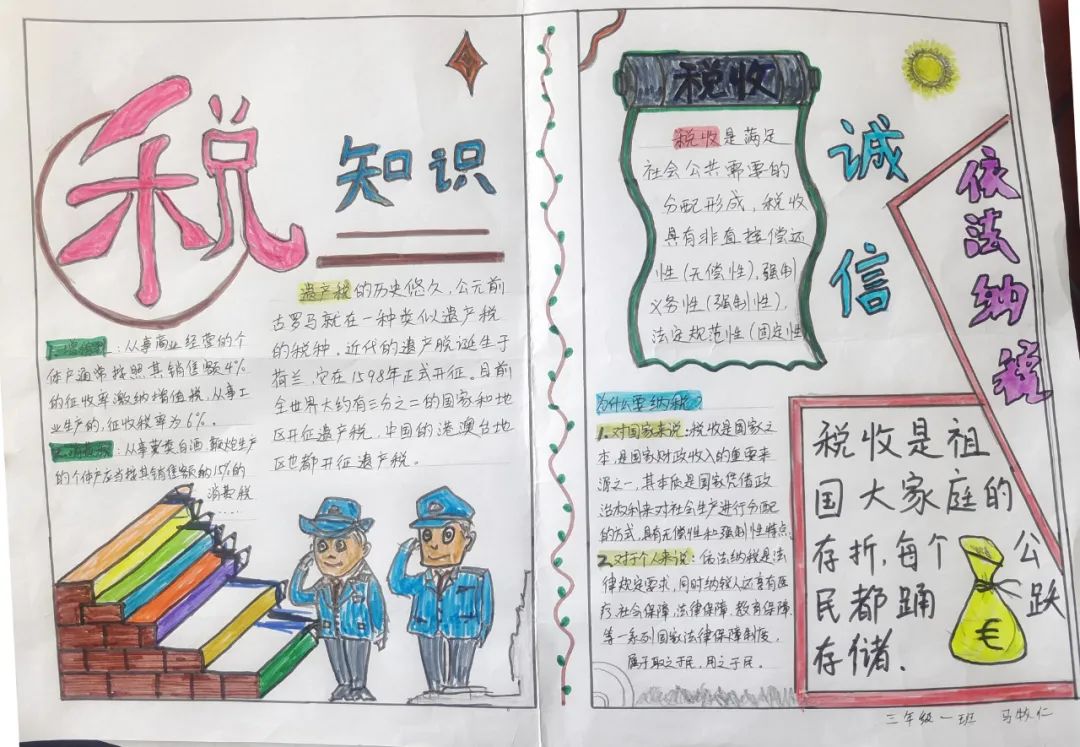 税
知识
遗产税的历史悠久，公元前
古罗马就在一种类似遗产税
的税种，近代的遗产脱诞生于
荷兰，它在1598年正式开征。目前
全世界大约有三分之二的国家和地
区开征遗产税，中国的港澳台地
区也都开征遗产税。
1.增值税：从事商业经营的个
体户通常按照其销售额4%
的征收率缴纳增值税，从事工
业生产的，征收税率为6%。
2.消费税：从事薯类白酒、鞭炮生产
的个体户应当按其销售额的15%的
消费税
……
税收
税收是满足
社会公共需要的
分配形成，税收
具有非直接偿还
性(无偿性)，强制
义务性(强制性)，
法定规范性(固定性
诚
信
依法纳税
为什么要纳税？
1.对国家来说：税收是国家之
本，是国家财政收入的重要来
源之一，其本质是国家凭借政
治权利来对社会生产进行分配
的方式，具有无偿性和强制性特点。
2.对于个人来说：依法纳税是法
律规定要求，同时纳税人还享有医
疗，社会保障，法律保障，教育保障
等一系列国家法律保障制度，
属于取之于民，用之于民。
税收是祖
国大家庭的
存折，每个公
民都踊跃
存储．
€
三年级一班 马牧仁